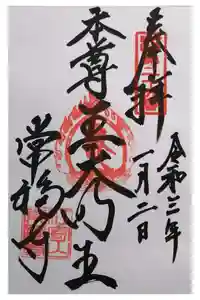 奉拝
令和三年
一月二日
本尊五大明王
常福寺